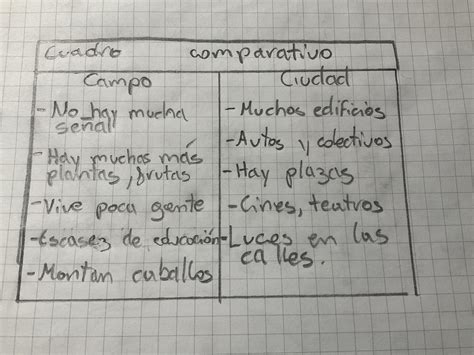 Cuadro comparativo
Campo
- No hay mucha
señal
- Hay muchas más
plantas, frutas
- Vive poca gente
- Escases de educación
- Montan caballos
Ciudad
- Muchos edificios
- Autos y colectivos
- Hay plazas
- Cines, teatros
- Luces en las
calles.